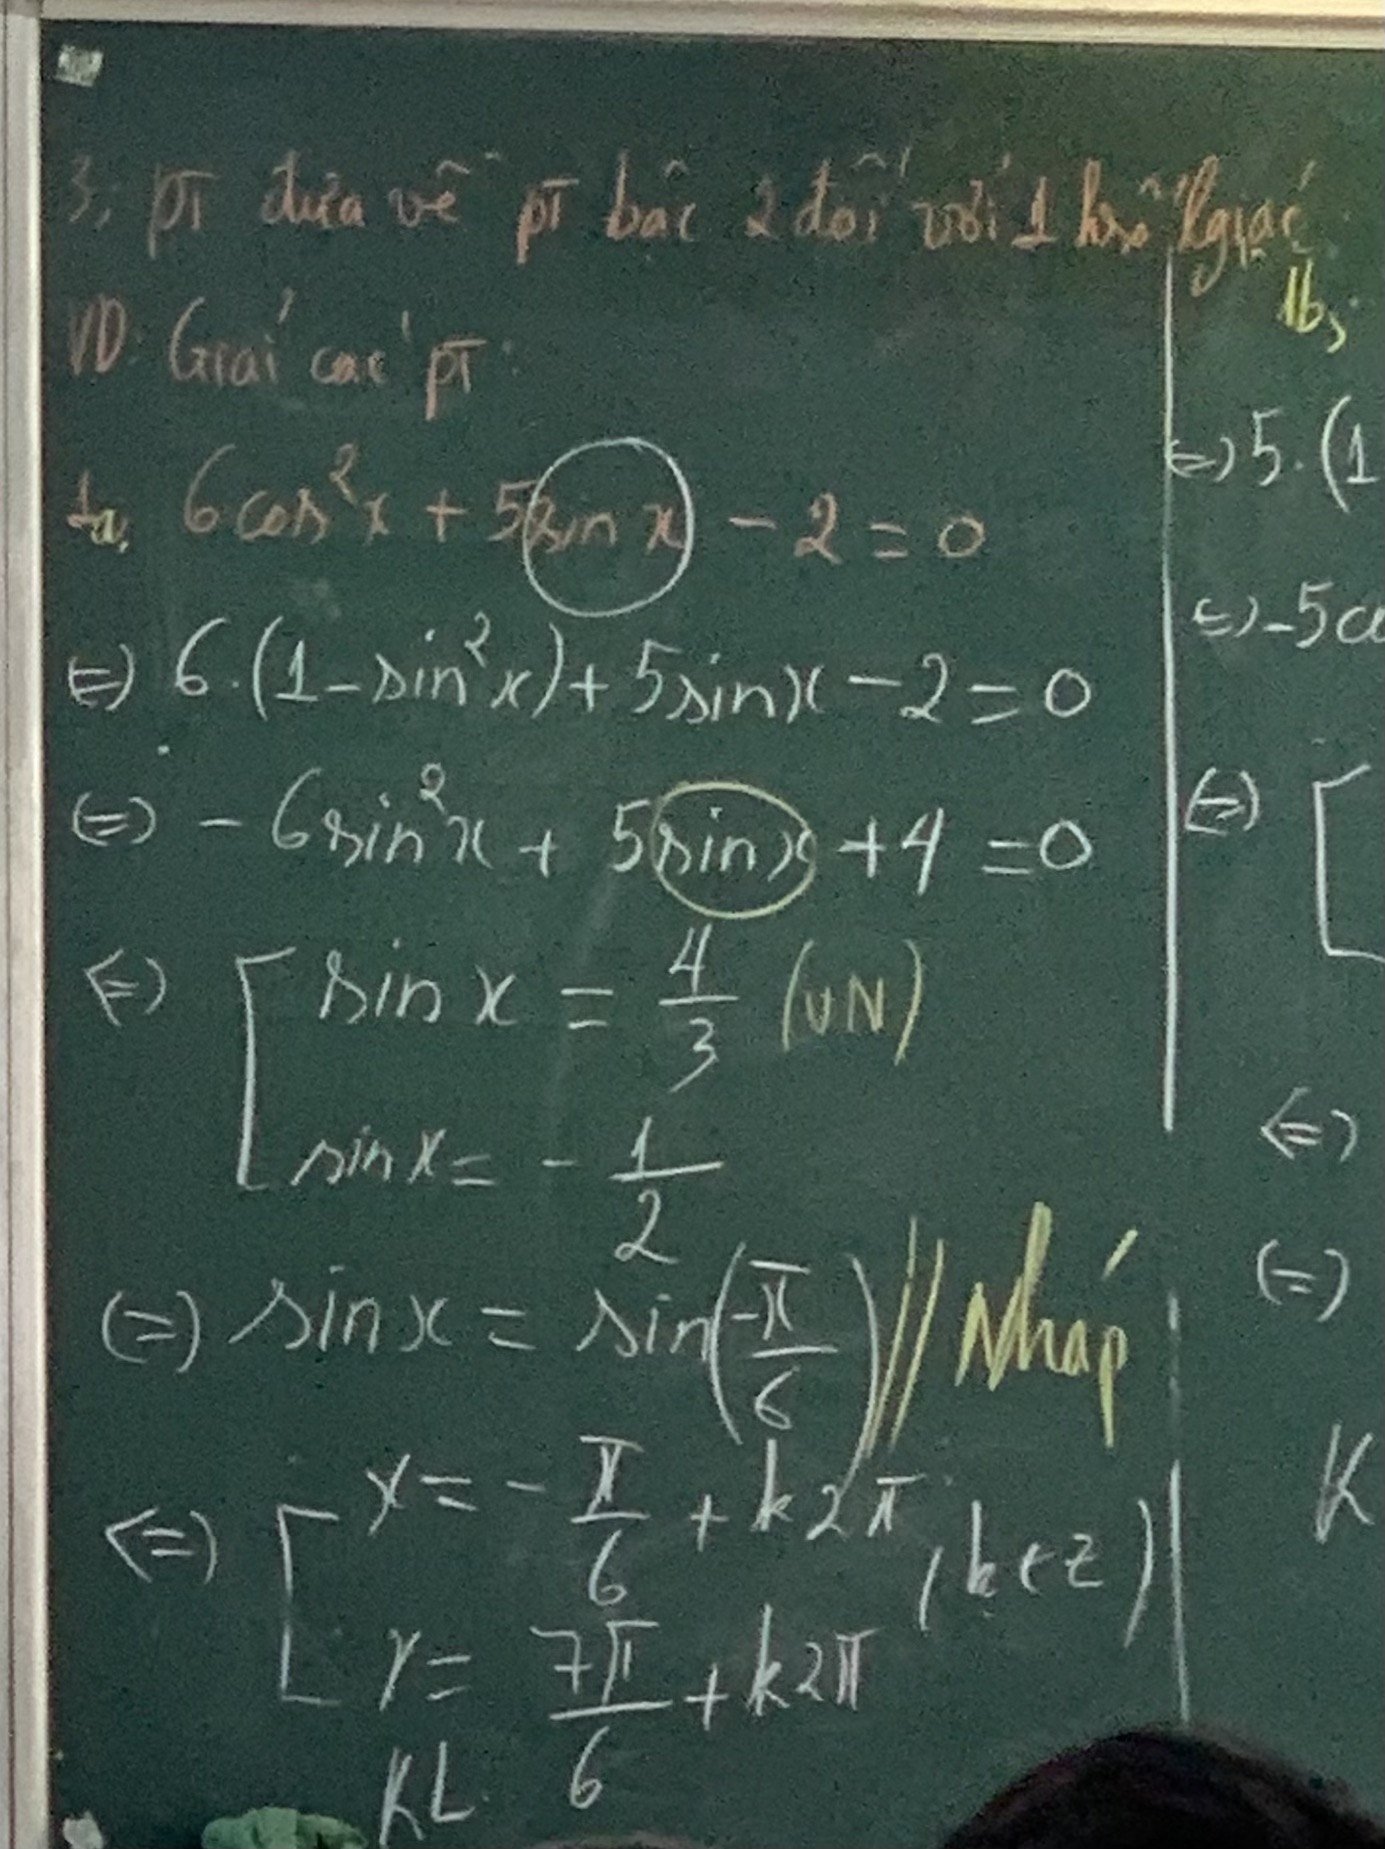 3, pT đưa về pT bậc 2 đối với 1 hsố lgiác
VD: Giải các pT:
1a, 6cos²x + 5sin x - 2 = 0
(=) 6.(1-sin²x)+5sinx-2=0
(=) -6sin²x + 5sinx +4 =0
(=) [ sin x = 4/3 (VN)
sin x = - 1/2
(=) sin x = sin(-π/6) // Nháp
(=) [ x = - π/6 + k2π
x = 7π/6 + k2π
(k∈Z)
KL
1b,
(=) 5.(1
(=) -5co
(=) [
(=)
(=)
K